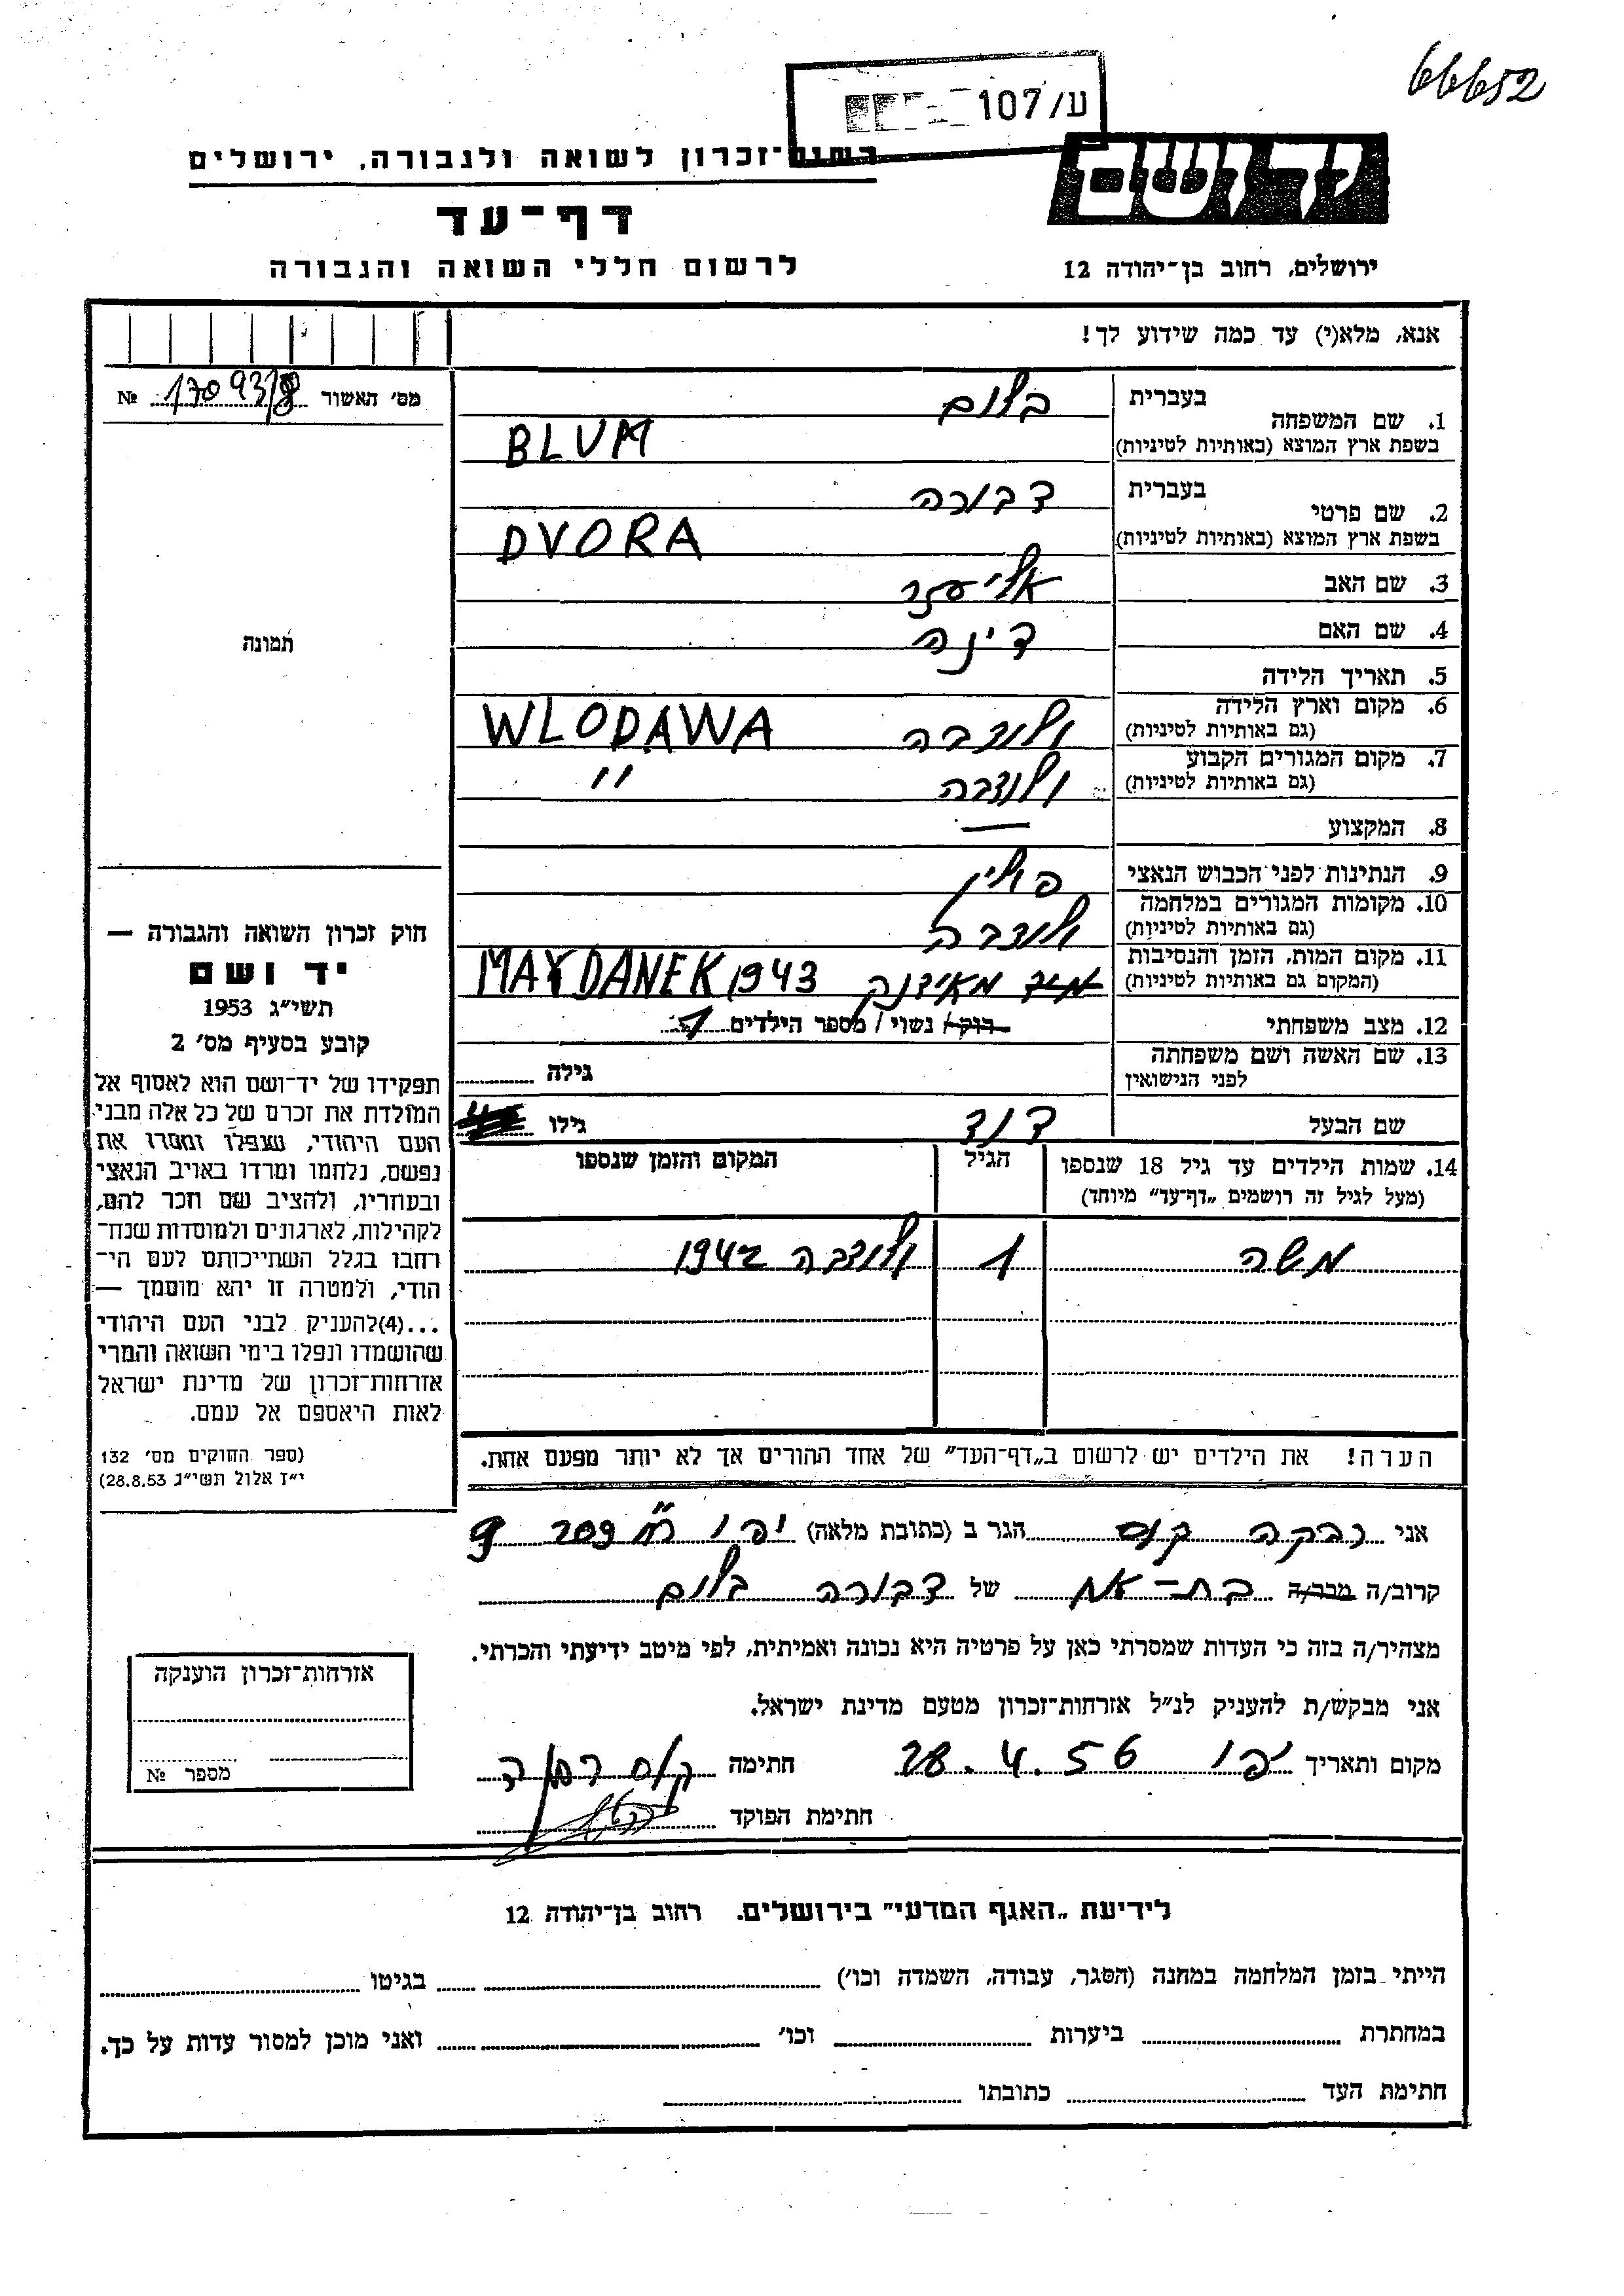 66652
ע/107
יד ושם
רשות־זכרון לשואה ולגבורה, ירושלים
דף־עד
לרשום חללי השואה והגבורה
ירושלים, רחוב בן־יהודה 12
אנא, מלא(י) עד כמה שידוע לך!
מס׳ האשור № 17093/8
תמונה
חוק זכרון השואה והגבורה —
יד ושם
תשי״ג 1953
קובע בסעיף מס׳ 2
תפקידו של יד־ושם הוא לאסוף אל
המולדת את זכרם של כל אלה מבני
העם היהודי, שנפלו ומסרו את
נפשם, נלחמו ומרדו באויב הנאצי
ובעוזריו, ולהציב שם וזכר להם,
לקהילות, לארגונים ולמוסדות שנח־
רחבו בגלל השתייכותם לעם הי־
הודי, ולמטרה זו יהא מוסמך —
...(4)להעניק לבני העם היהודי
שהושמדו ונפלו בימי השואה והמרי
אזרחות־זכרון של מדינת ישראל
לאות היאספם אל עמם.
(ספר החוקים מס׳ 132
י״ז אלול תשי״ג 28.8.53)
1. שם המשפחה בעברית בלום
בשפת ארץ המוצא (באותיות לטיניות) BLUM
2. שם פרטי בעברית דבורה
בשפת ארץ המוצא (באותיות לטיניות) DVORA
3. שם האב אליעזר
4. שם האם דינה
5. תאריך הלידה
6. מקום וארץ הלידה (גם באותיות לטיניות) ולודבה WLODAWA
7. מקום המגורים הקבוע (גם באותיות לטיניות) ולודבה "
8. המקצוע —
9. הנתינות לפני הכבוש הנאצי פולין
10. מקומות המגורים במלחמה (גם באותיות לטיניות) ולודבה
11. מקום המות, הזמן והנסיבות (המקום גם באותיות לטיניות) מאידנק MAYDANEK 1943
12. מצב משפחתי רוק/ נשוי / מספר הילדים 1
13. שם האשה ושם משפחתה לפני הנישואין גילה
שם הבעל דוד גילו
14. שמות הילדים עד גיל 18 שנספו הגיל המקום והזמן שנספו
(מעל לגיל זה רושמים „דף־עד״ מיוחד)
משה 1 ולודבה 1942
הערה! את הילדים יש לרשום ב„דף־העד״ של אחד ההורים אך לא יותר מפעם אחת.
אני רבקה קוס הגר ב (כתובת מלאה) יפו
קרוב/ה מכר/ה בת־אח של דבורה בלום
מצהיר/ה בזה כי העדות שמסרתי כאן על פרטיה היא נכונה ואמיתית, לפי מיטב ידיעתי והכרתי.
אני מבקש/ת להעניק לנ״ל אזרחות־זכרון מטעם מדינת ישראל.
מקום ותאריך יפו 28.4.56 חתימה קוס רבקה
חתימת הפוקד
אזרחות־זכרון הוענקה
מספר №
לידיעת „האגף המדעי״ בירושלים. רחוב בן־יהודה 12
הייתי בזמן המלחמה במחנה (הסגר, עבודה, השמדה וכו׳) בגיטו
במחתרת ביערות וכו׳ ואני מוכן למסור עדות על כך.
חתימת העד כתובתו